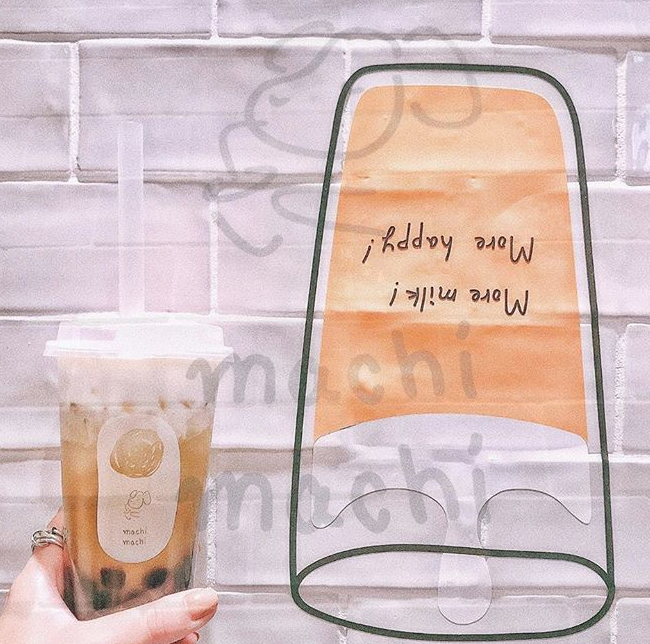 More milk!
More happy!
machi
machi
machi
machi